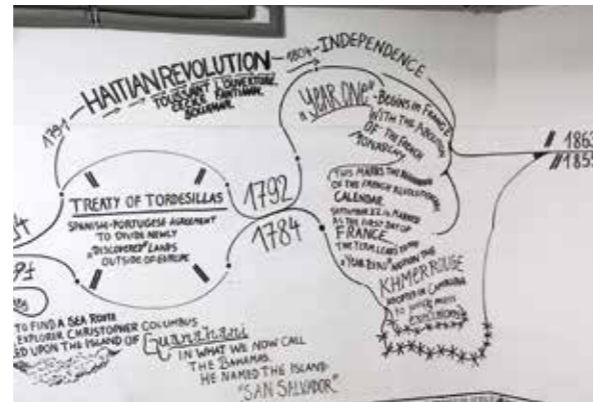 1791
HAITIAN REVOLUTION
1804
INDEPENDENCE
TOUSSAINT L'OUVERTURE,
CÉCILE FATIMAN,
BOUKMAN.
"YEAR ONE"
- BEGINS IN FRANCE
WITH THE ABOLITION
OF THE FRENCH
MONARCHY.
THIS MARKS THE BEGINNING
OF THE FRENCH REVOLUTIONARY
CALENDAR.
SEPTEMBER 22 IS MARKED
AS THE FIRST DAY OF
FRANCE
THE TERM LEADS TO THE
"YEAR ZERO" NOTION THE
KHMER ROUGE
ADOPTED IN CAMBODIA
TO
MASS
1863
1855
TREATY OF TORDESILLAS
SPANISH-PORTUGESE AGREEMENT
TO DIVIDE NEWLY
"DISCOVERED" LANDS
OUTSIDE OF EUROPE
1792
1784
TO FIND A SEA ROUTE
EXPLORER CHRISTOPHER COLUMBUS
UPON THE ISLAND OF Guanahani
IN WHAT WE NOW CALL
THE BAHAMAS.
HE NAMED THE ISLAND
"SAN SALVADOR"